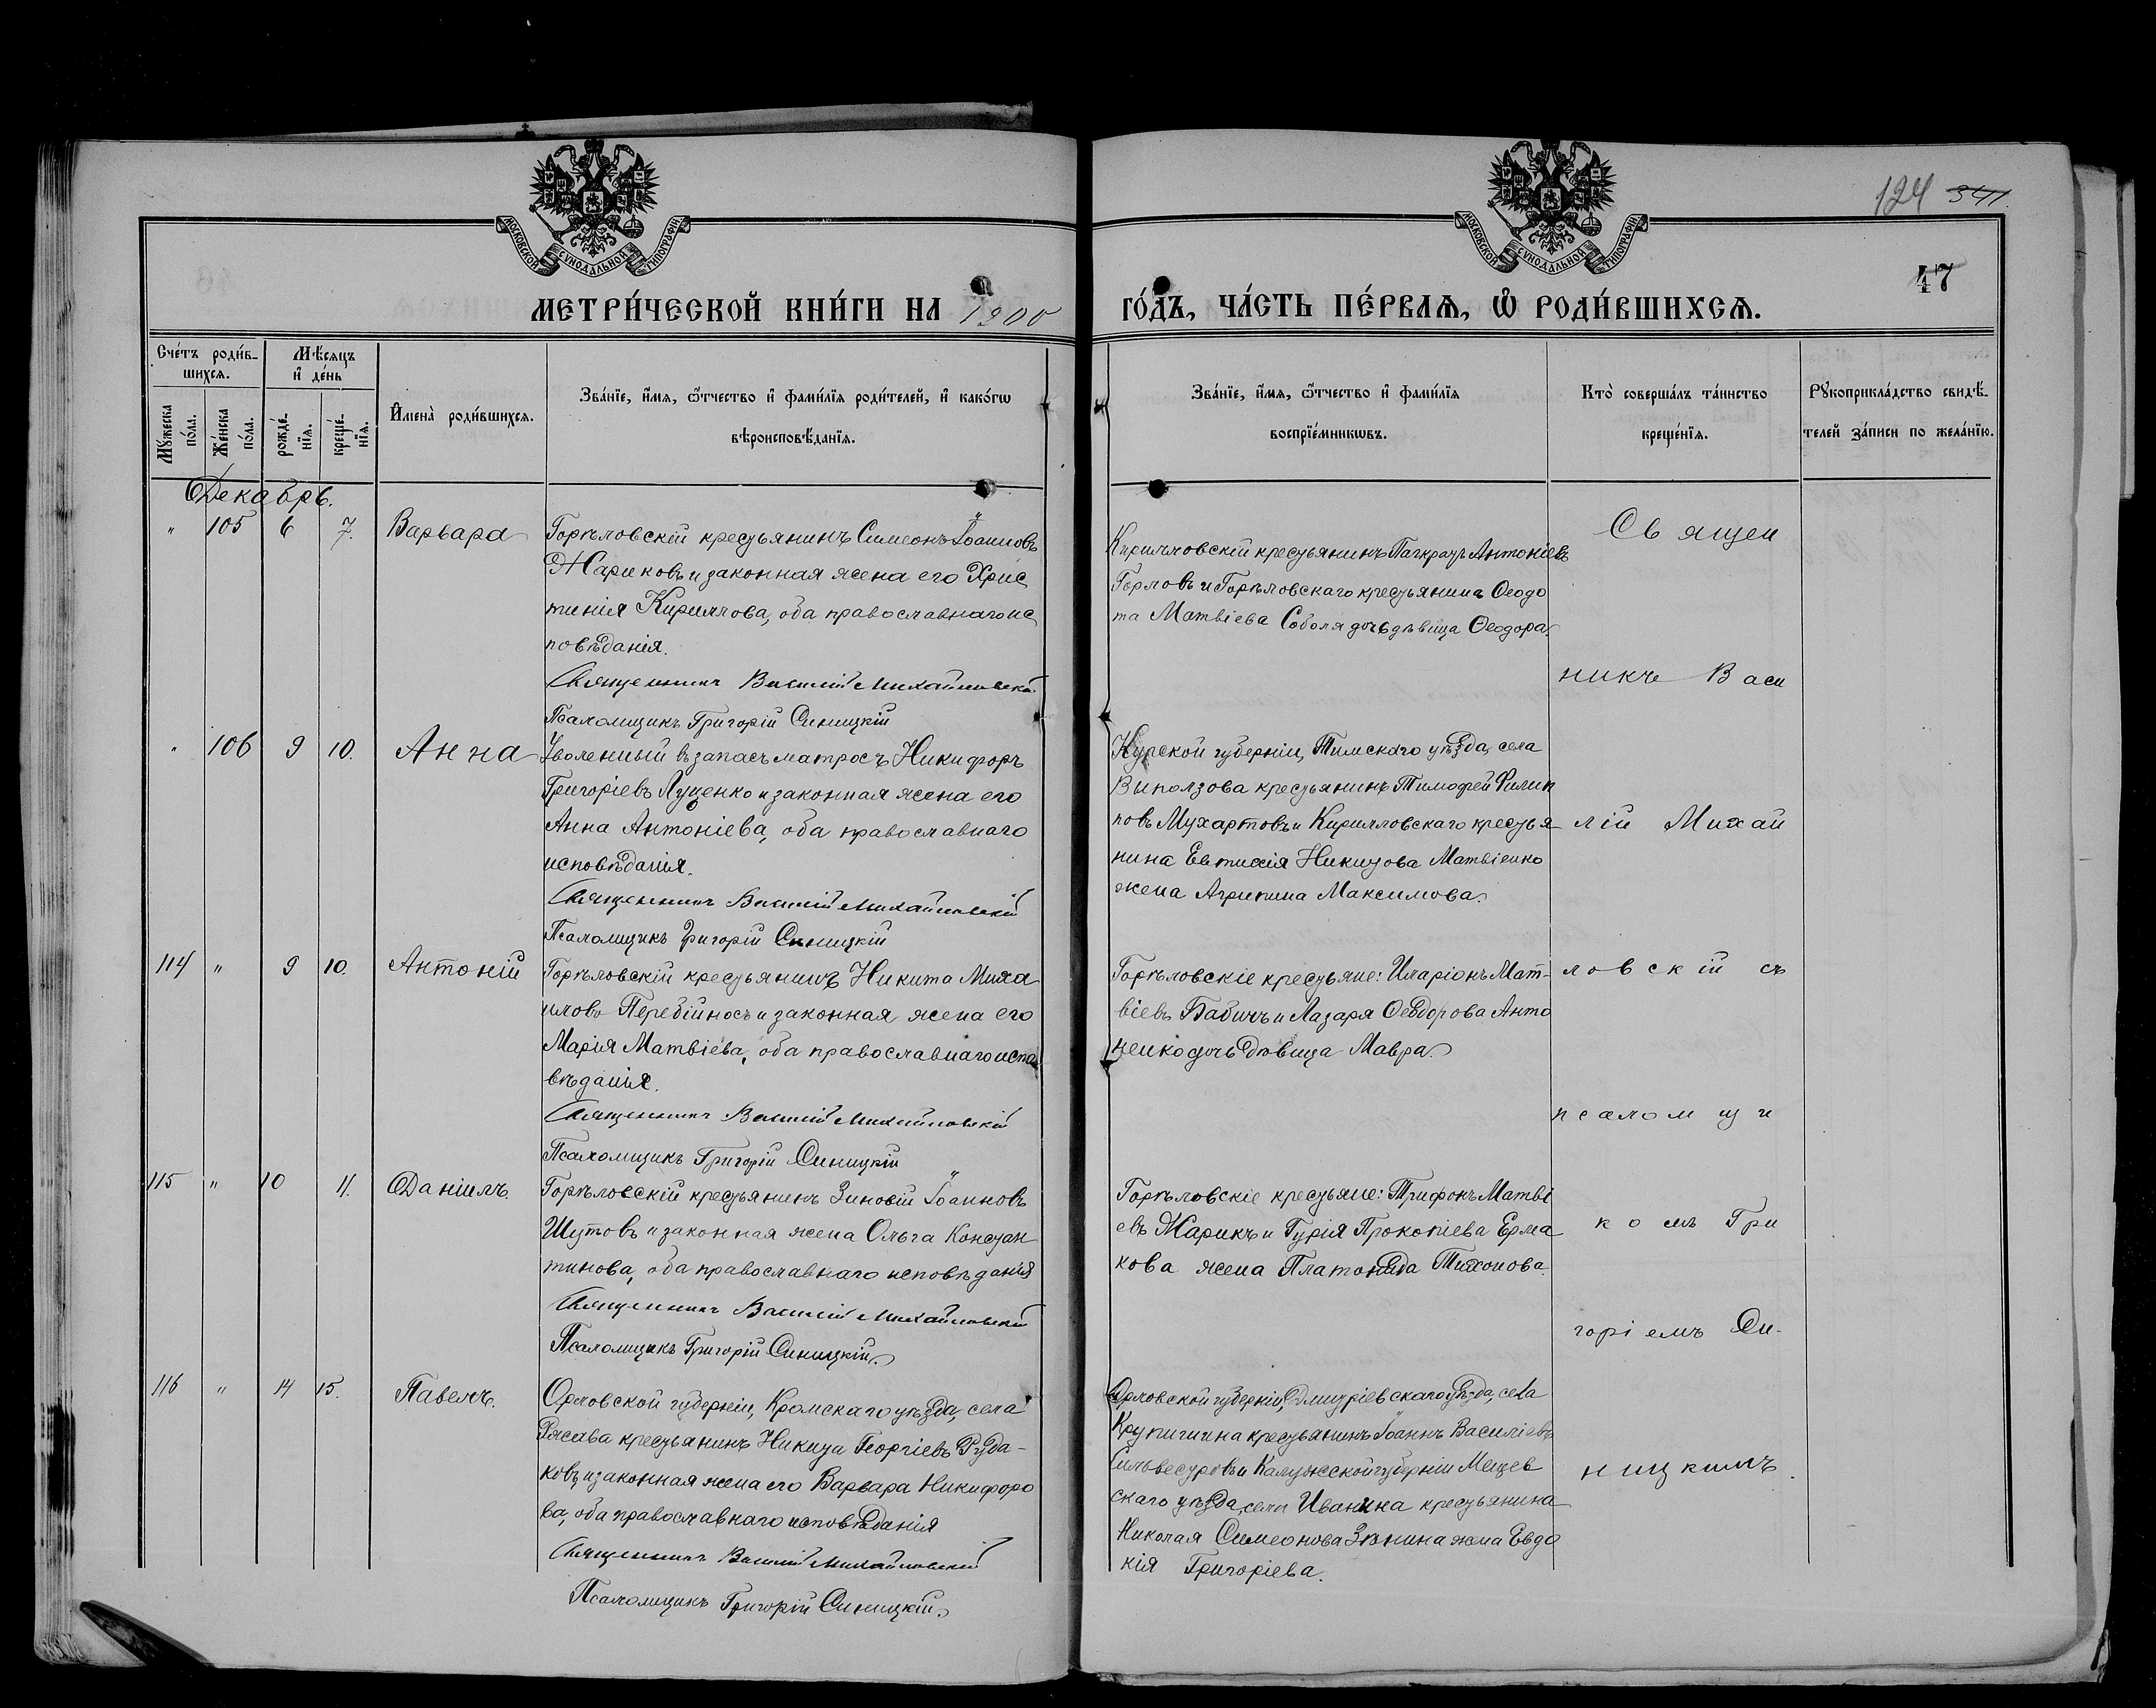 124 341
47
МОСКОВСКОЙ СѴНОДАЛЬНОЙ ТИПОГРАФІИ
МОСКОВСКОЙ СѴНОДАЛЬНОЙ ТИПОГРАФІИ
МЕТРИ́ЧЕСКОЙ КНИ́ГИ НА 1900 ГО́ДЪ, ЧА́СТЬ ПЕ́РВАѦ, Ѽ РОДИ́ВШИХСѦ.
Сче́тъ роди́в-
шихсѧ.
Мѣ́сяцъ
и҆ де́нь
Мꙋ́жеска по́ла.
Же́нска по́ла.
рожде́-
нїѧ.
креще́-
нїѧ.
И҆мена̀ роди́вшихсѧ.
Зва́нїе, и҆́мѧ, ѻ҆́тчество и҆ фами́лїѧ роди́телей, и҆ како́гѡ
вѣроисповѣ́данїѧ.
Зва́нїе, и҆́мѧ, ѻ҆́тчество и҆ фами́лїѧ
воспрїе́мникѡвъ.
Кто̀ соверша́лъ та́инство
креще́нїѧ.
Рꙋкоприкла́дство свидѣ́-
телей за́писи по жела́нїю.
Декабрь.
" 105 6 7. Варвара
Горѣловскій крестьянинъ Симеонъ Іоанновъ
Жариковъ и законная жена его Хрис
тинія Кириллова, оба православнаго ис
повѣданія.
Священникъ Василій Михайловскій
Псаломщикъ Григорій Синицкій
Кирилловскій крестьянинъ Панкратъ Антоніевъ
Горловъ и Горѣловскаго крестьянина Ѳеодо
та Матвіева Соболя дочь дѣвица Ѳеодора.
Священ
никъ Васи
" 106 9 10. Анна
Уволенный въ запасъ матросъ Никифоръ
Григоріевъ Луценко и законная жена его
Анна Антоніева, оба православнаго
исповѣданія.
Священникъ Василій Михайловскій
Псаломщикъ Григорій Синицкій
Курской губерніи, Тимскаго уѣзда, села
Выползова крестьянинъ Тимофей Филип
повъ Мухартовъ и Кирилловскаго крестья
нина Евтихія Никитова Матвіенко
жена Агрипина Максимова.
лій Михай
114 " 9 10. Антоній
Горѣловскій крестьянинъ Никита Миха
илово Перебійносъ и законная жена его
Марія Матвіева, оба православнаго испо
вѣданія.
Священникъ Василій Михайловскій
Псаломщикъ Григорій Синицкій
Горѣловскіе крестьяне: Иларіонъ Мат-
віевъ Бабичъ и Лазаря Ѳеодорова Анто
ненко дочь дѣвица Мавра.
ловскій съ
псаломщи
115 " 10 11. Даніилъ.
Горѣловскій крестьянинъ Зиновій Іоанновъ
Шутовъ и законная жена Ольга Констан
тинова, оба православнаго исповѣданія
Священникъ Василій Михайловскій
Псаломщикъ Григорій Синицкій.
Горѣловскіе крестьяне: Трифонъ Матві
евъ Жарикъ и Гурія Прокопіева Ерма
кова жена Платонида Тихонова.
комъ Гри
горіемъ Си-
116 " 14 15. Павелъ.
Орловской губерніи, Кромскаго уѣзда, села
крестьянинъ Никита Георгіевъ Руда-
ковъ и законная жена его Варвара Никифоро
ва, оба православнаго исповѣданія
Священникъ Василій Михайловскій
Псаломщикъ Григорій Синицкій.
Орловской губерніи, Дмитріевскаго уѣзда, села
Крупичина крестьянинъ Іоаннъ Василіевъ
Сильвестровъ и Калужской губерніи Мещев
скаго уѣзда, села Иванина крестьянина
Николая Симеонова Зюнина жена Евдо
кія Григоріева.
ницкимъ.